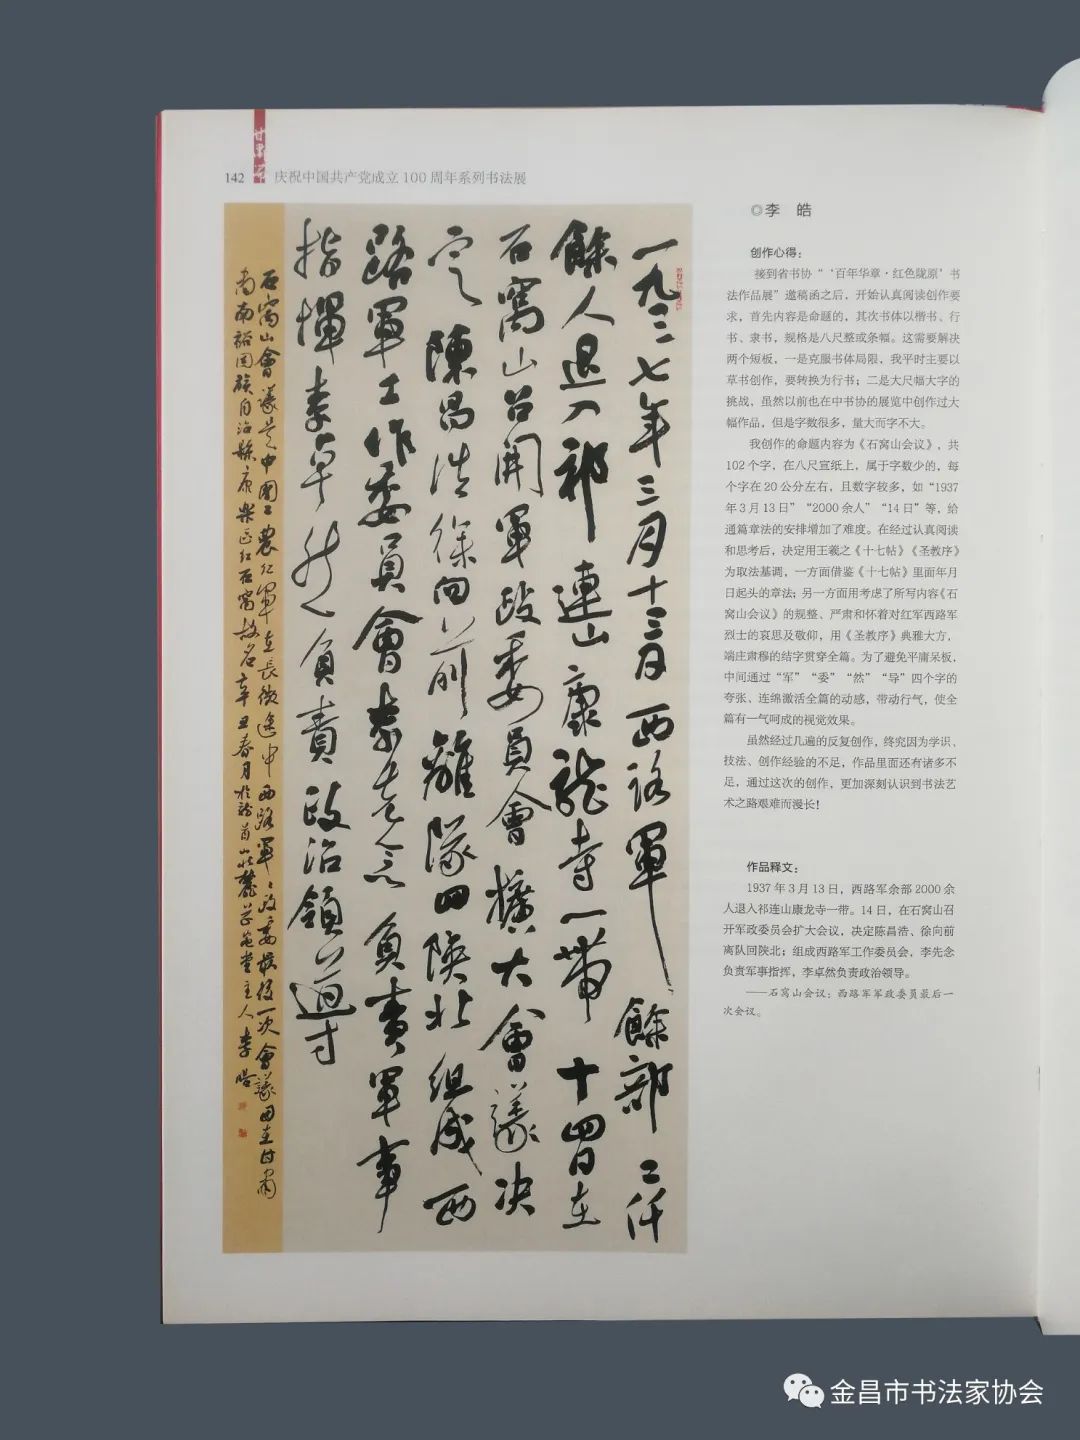 142
甘肃
庆祝中国共产党成立100周年系列书法展
一九三七年三月十三日西路軍餘部二仟
餘人退入祁連山康龍寺一帶十四日在
石窩山召開軍政委員會擴大會議决
定陳昌浩徐向前離隊回陝北組成西
路軍工作委員會李先念負責軍事
指揮李卓然負責政治領導
石窩山會議是中國工農紅軍在長徵途中西路軍軍政委最後一次會議因在甘肅
肅南裕固族自治縣康樂區紅石窩故名辛丑春月於龍首山北麓
主人李皓
◎李 皓
创作心得：
接到省书协“‘百年华章·红色陇原’书
法作品展”邀稿函之后，开始认真阅读创作要
求，首先内容是命题的，其次书体以楷书、行
书、隶书，规格是八尺整或条幅。这需要解决
两个短板，一是克服书体局限，我平时主要以
草书创作，要转换为行书；二是大尺幅大字的
挑战，虽然以前也在中书协的展览中创作过大
幅作品，但是字数很多，量大而字不大。
我创作的命题内容为《石窝山会议》，共
102个字，在八尺宣纸上，属于字数少的，每
个字在20公分左右，且数字较多，如“1937
年3月13日”“2000余人”“14日”等，给
通篇章法的安排增加了难度。在经过认真阅读
和思考后，决定用王羲之《十七帖》《圣教序》
为取法基调，一方面借鉴《十七帖》里面年月
日起头的章法；另一方面用考虑了所写内容《石
窝山会议》的规整、严肃和怀着对红军西路军
烈士的哀思及敬仰，用《圣教序》典雅大方，
端庄肃穆的结字贯穿全篇。为了避免平庸呆板，
中间通过“军”“委”“然”“导”四个字的
夸张、连绵激活全篇的动感，带动行气，使全
篇有一气呵成的视觉效果。
虽然经过几遍的反复创作，终究因为学识、
技法、创作经验的不足，作品里面还有诸多不
足，通过这次的创作，更加深刻认识到书法艺
术之路艰难而漫长！
作品释文：
1937年3月13日，西路军余部2000余
人退入祁连山康龙寺一带。14日，在石窝山召
开军政委员会扩大会议，决定陈昌浩、徐向前
离队回陕北；组成西路军工作委员会，李先念
负责军事指挥，李卓然负责政治领导。
——石窝山会议：西路军军政委员最后一
次会议。
金昌市书法家协会